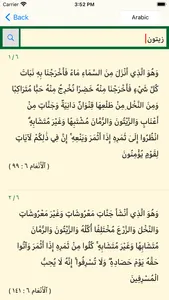 3:52 PM
Back
Arabic
زيتون
١/٦
وَهُوَ الَّذِي أَنْزَلَ مِنَ السَّمَاءِ مَاءً فَأَخْرَجْنَا بِهِ نَبَاتَ
كُلِّ شَيْءٍ فَأَخْرَجْنَا مِنْهُ خَضِرًا نُخْرِجُ مِنْهُ حَبًّا مُتَرَاكِبًا
وَمِنَ النَّخْلِ مِنْ طَلْعِهَا قِنْوَانٌ دَانِيَةٌ وَجَنَّاتٍ مِنْ
أَعْنَابٍ وَالزَّيْتُونَ وَالرُّمَّانَ مُشْتَبِهًا وَغَيْرَ مُتَشَابِهٍ ۗ
انْظُرُوا إِلَىٰ ثَمَرِهِ إِذَا أَثْمَرَ وَيَنْعِهِ ۚ إِنَّ فِي ذَٰلِكُمْ لَآيَاتٍ
لِقَوْمٍ يُؤْمِنُونَ
ٱلْأَنْعَام ٦ : ٩٩ )
٢/٦
وَهُوَ الَّذِي أَنْشَأَ جَنَّاتٍ مَعْرُوشَاتٍ وَغَيْرَ مَعْرُوشَاتٍ
وَالنَّخْلَ وَالزَّرْعَ مُخْتَلِفًا أُكُلُهُ وَالزَّيْتُونَ وَالرُّمَّانَ
مُتَشَابِهًا وَغَيْرَ مُتَشَابِهٍ ۚ كُلُوا مِنْ ثَمَرِهِ إِذَا أَثْمَرَ وَآتُوا
حَقَّهُ يَوْمَ حَصَادِهِ ۖ وَلَا تُسْرِفُوا ۚ إِنَّهُ لَا يُحِبُّ
الْمُسْرِفِينَ
ٱلْأَنْعَام ٦ : ١٤١ )